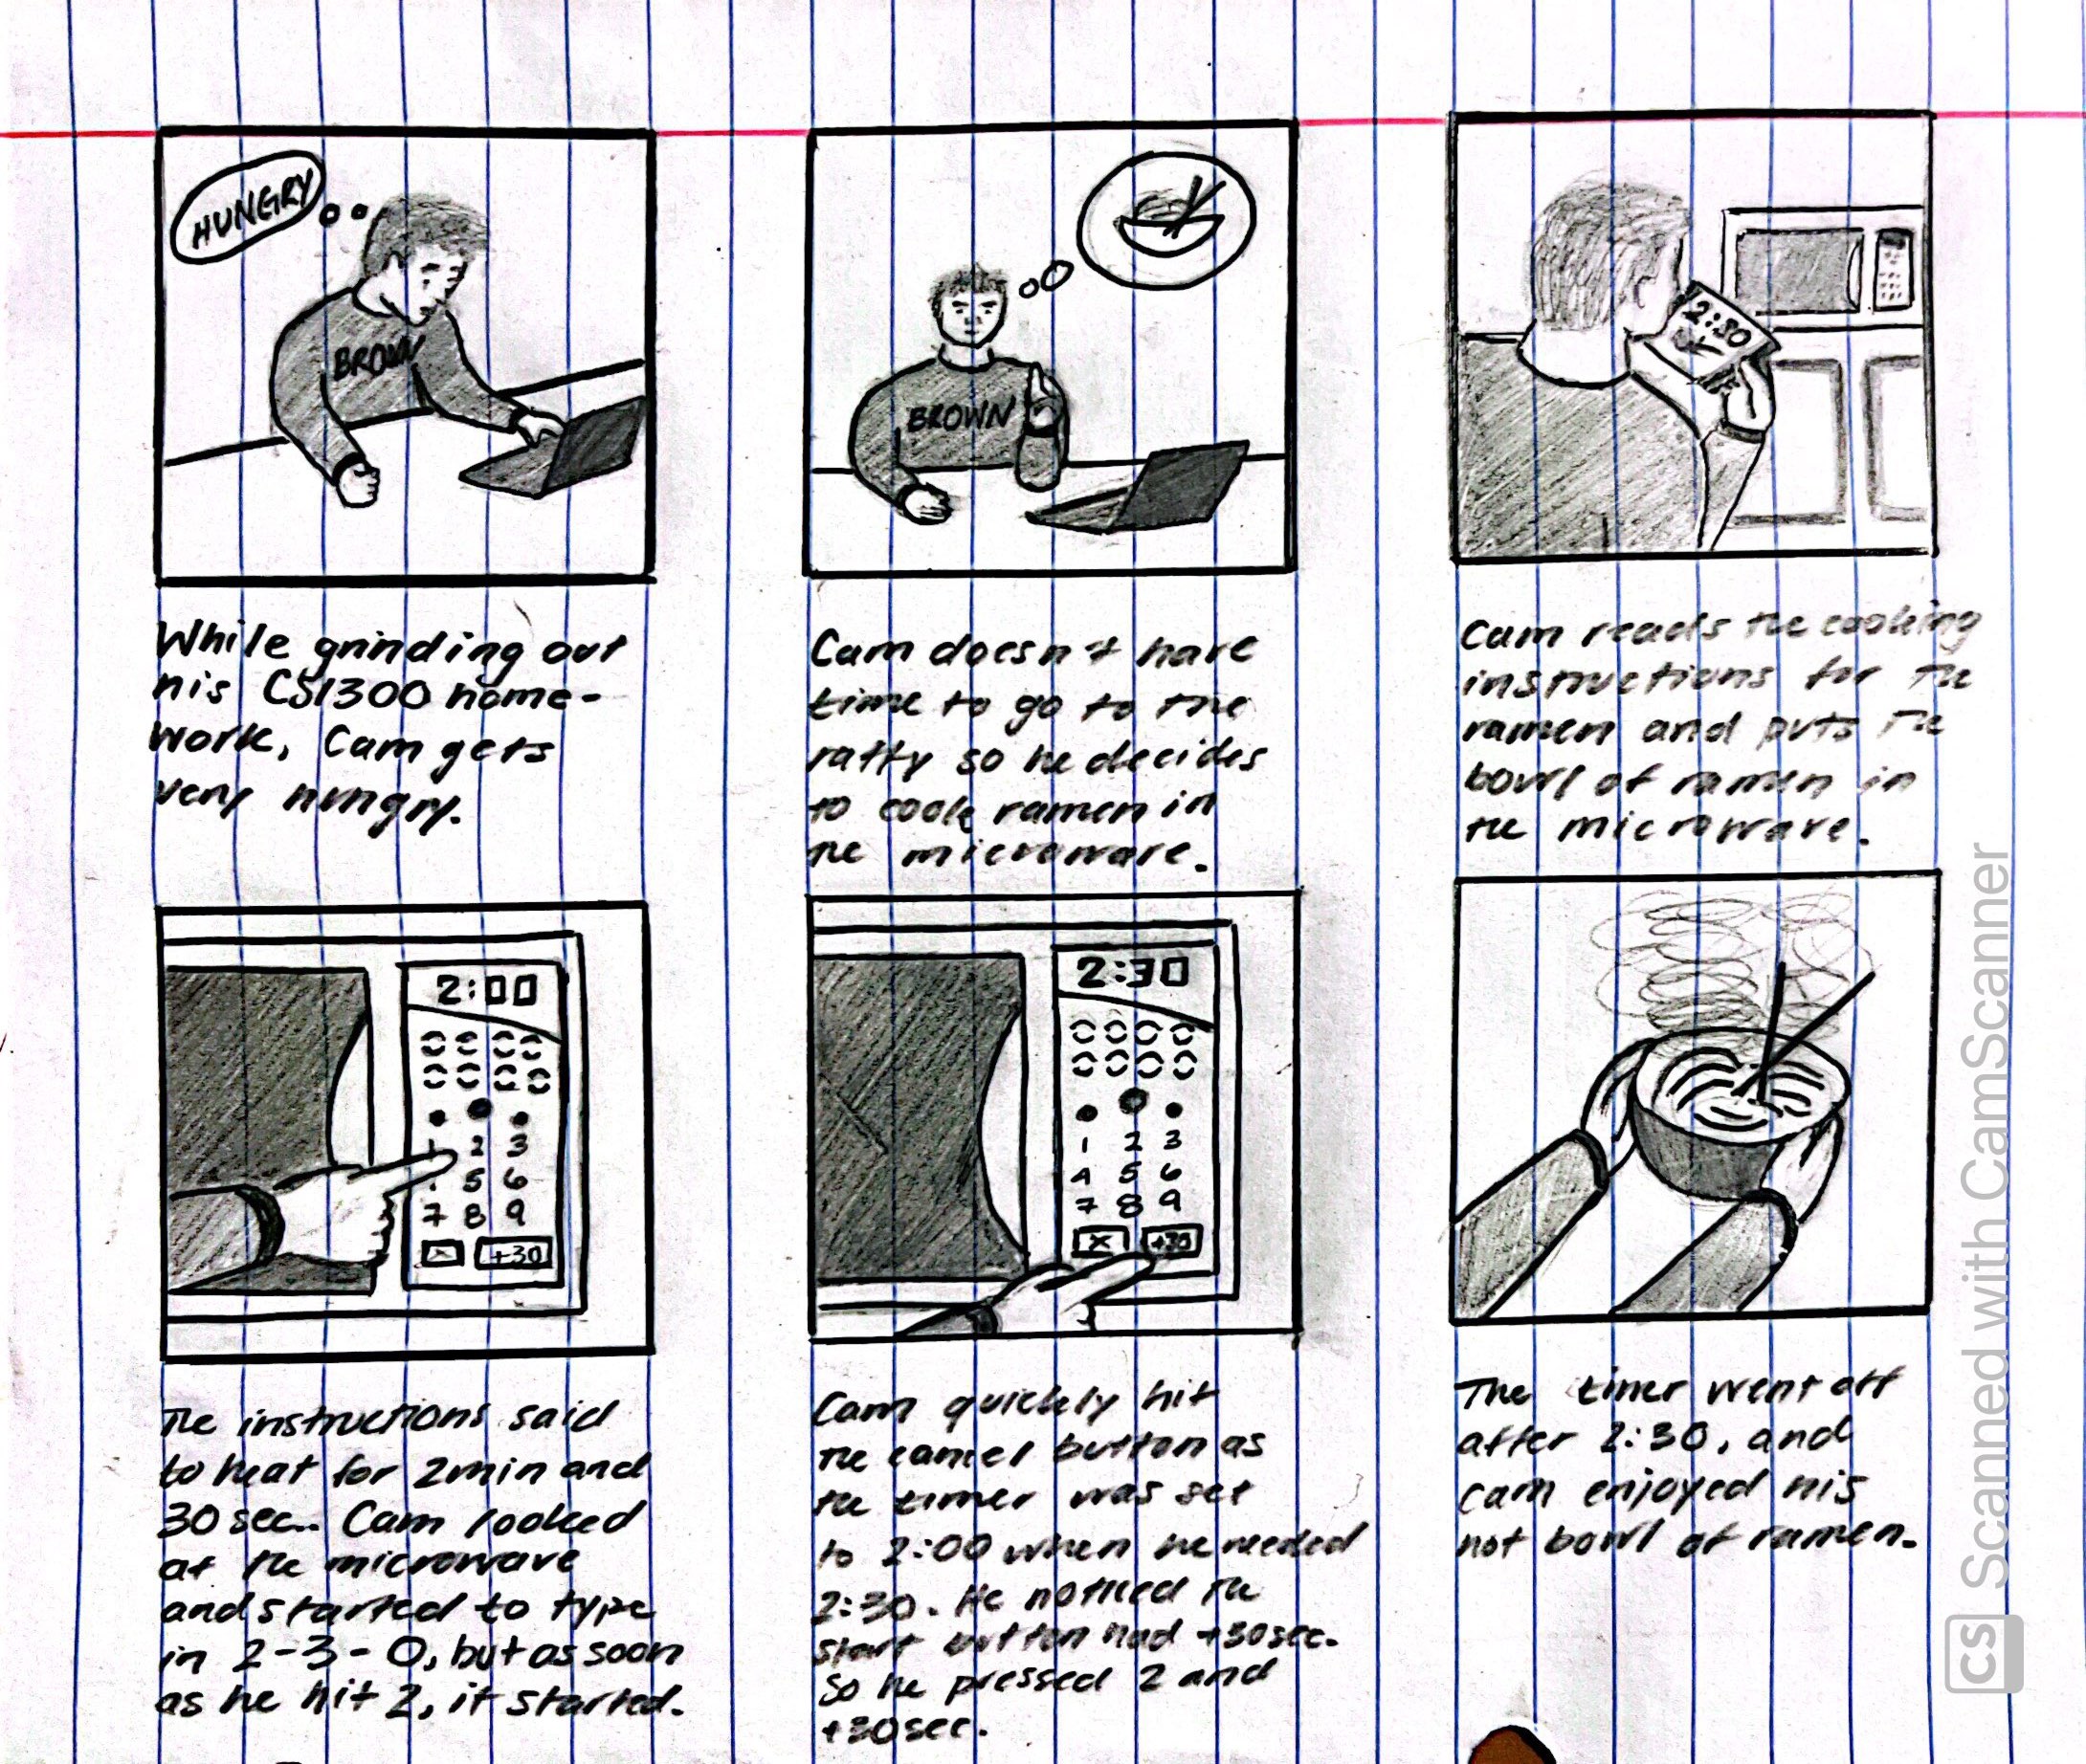 HUNGRY
BROWN
While grinding out
his CS1300 home-
work, Cam gets
very hungry.
BROWN
Cam doesn't have
time to go to the
ratty so he decides
to cook ramen in
the microwave.
2:30
Cam reads the cooking
instructions for the
ramen and puts the
bowl of ramen in
the microwave.
2:00
2 3
5 6
7 8 9
x +30
The instructions said
to heat for 2min and
30 sec.. Cam looked
at the microwave
and started to type
in 2-3-0, but as soon
as he hit 2, it started.
2:30
1 2 3
4 5 6
7 8 9
x +30
Cam quickly hit
the cancel button as
the timer was set
to 2:00 when he needed
2:30. He noticed the
start button had +30sec.
So he pressed 2 and
+30sec.
The timer went off
after 2:30, and
Cam enjoyed his
hot bowl of ramen.
CS Scanned with CamScanner